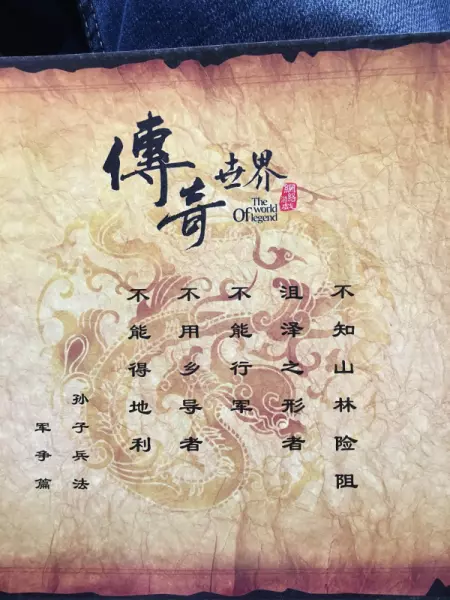 傳奇世界
The world
Of legend
不知山林险阻
沮泽之形者
不能行军
不用乡导者
不能得地利
孙子兵法
军争篇